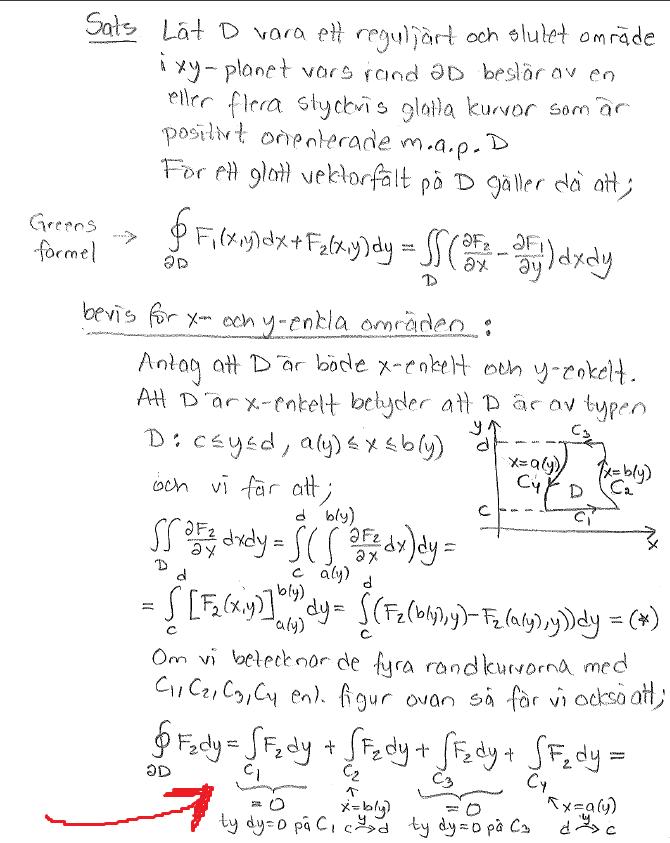 Sats Låt D vara ett reguljärt och slutet område
i xy-planet vars rand ∂D består av en
eller flera styckvis glatta kurvor som är
positivt orienterade m.a.p. D
För ett glatt vektorfält på D gäller då att;
Greens formel → ∮_∂D F₁(x,y)dx + F₂(x,y)dy = ∬_D (∂F₂/∂x - ∂F₁/∂y) dxdy
bevis för x- och y-enkla områden :
Antag att D är både x-enkelt och y-enkelt.
Att D är x-enkelt betyder att D är av typen
D : c ≤ y ≤ d , a(y) ≤ x ≤ b(y)
och vi får att;
y d c x C₃ x=a(y) C₄ D x=b(y) C₂ C₁
∬_D ∂F₂/∂x dxdy = ∫_c^d ( ∫_a(y)^b(y) ∂F₂/∂x dx ) dy =
= ∫_c^d [F₂(x,y)]_a(y)^b(y) dy = ∫_c^d (F₂(b(y),y) - F₂(a(y),y)) dy = (*)
Om vi betecknar de fyra randkurvorna med
C₁, C₂, C₃, C₄ enl. figur ovan så får vi också att;
∮_∂D F₂dy = ∫_C₁ F₂dy + ∫_C₂ F₂dy + ∫_C₃ F₂dy + ∫_C₄ F₂dy =
= 0 ↑ x=b(y) = 0 ↖ x=a(y)
ty dy=0 på C₁ c y→ d ty dy=0 på C₃ d y→ c